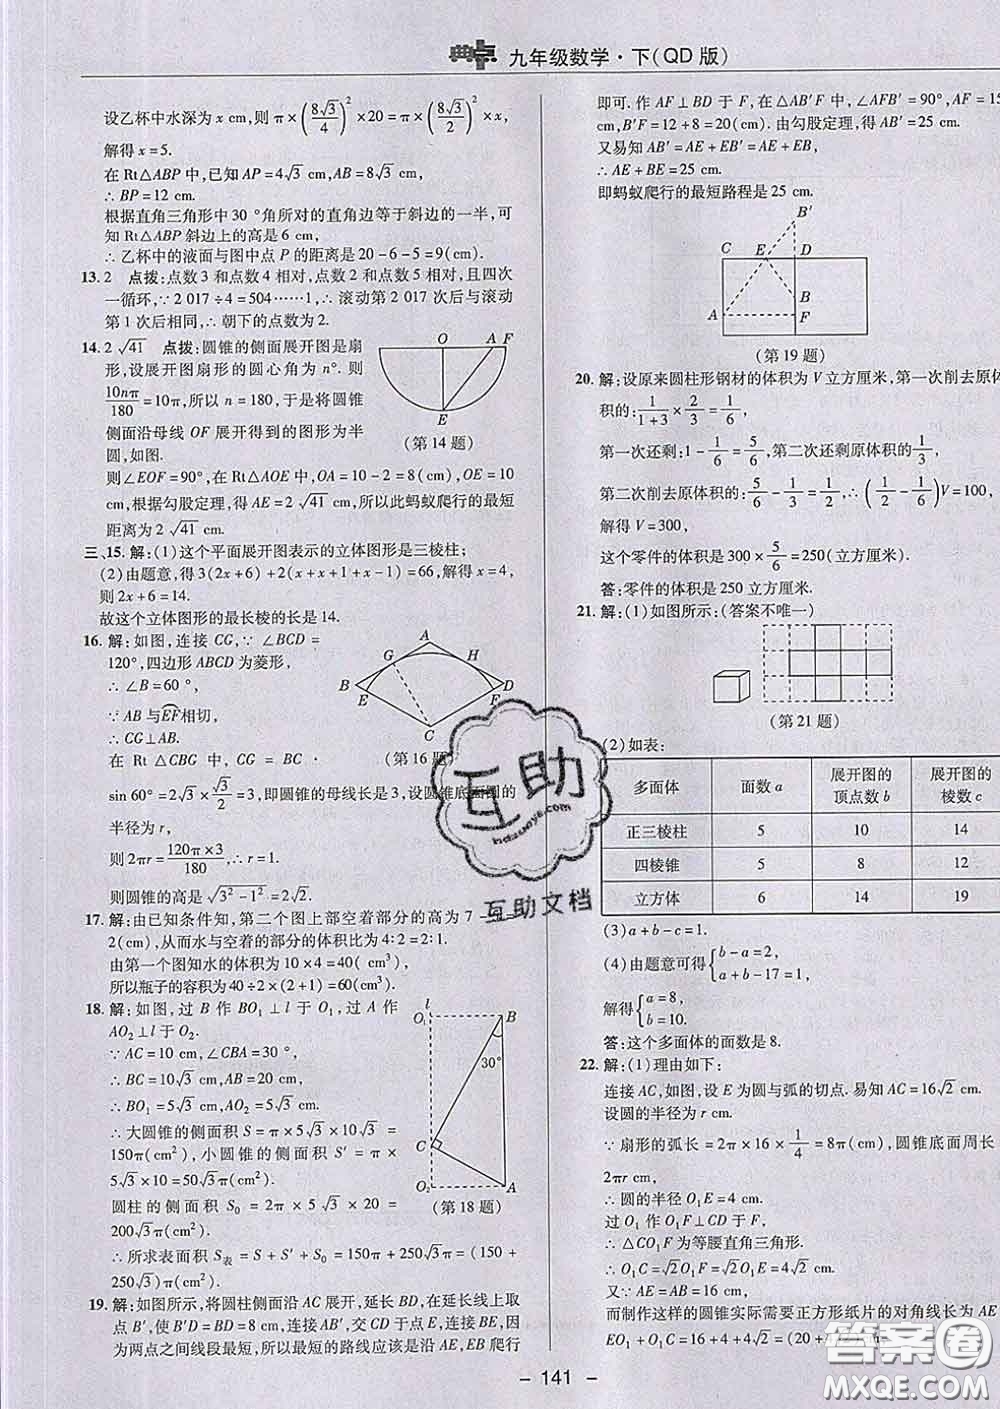 典点 九年级数学·下(QD版)
设乙杯中水深为 x cm,则 π×(8√3/4)²×20=π×(8√3/2)²×x,
解得 x=5.
在 Rt△ABP 中,已知 AP=4√3 cm,AB=8√3 cm,
∴BP=12 cm.
根据直角三角形中30°角所对的直角边等于斜边的一半,可
知 Rt△ABP 斜边上的高是 6 cm,
∴乙杯中的液面与图中点 P 的距离是 20-6-5=9(cm).
13.2 点拨:点数3和点数4相对,点数2和点数5相对,且四次
一循环,∵2 017÷4=504……1,∴滚动第2 017次后与滚动
第1次后相同,∴朝下的点数为2.
14.2√41 点拨:圆锥的侧面展开图是扇
形,设展开图扇形的圆心角为 n°. 则
10nπ/180=10π,所以 n=180,于是将圆锥
侧面沿母线 OF 展开得到的图形为半
圆,如图.
O A F
E
(第14题)
则∠EOF=90°,在 Rt△AOE 中,OA=10-2=8(cm),OE=10
cm,根据勾股定理,得 AE=2√41,所以此蚂蚁爬行的最短
距离为2√41 cm.
三、15.解:(1)这个平面展开图表示的立体图形是三棱柱;
(2)由题意,得3(2x+6)+2(x+x+1+x-1)=66,解得 x=4,
则2x+6=14.
故这个立体图形的最长棱的长是14.
16.解:如图,连接 CG,∵∠BCD=
120°,四边形 ABCD 为菱形,
∴∠B=60°,
∵AB 与EF相切,
∴CG⊥AB.
A
G H
B D
E F
C
(第16题)
在 Rt△CBG 中, CG = BC ·
sin 60°=2√3×√3/2=3,即圆锥的母线长是3,设圆锥底面圆的
半径为 r,
则2πr=120π×3/180,∴r=1.
则圆锥的高是√3²-1²=2√2.
17.解:由已知条件知,第二个图上部空着部分的高为7
2(cm),从而水与空着的部分的体积比为4∶2=2∶1.
由第一个图知水的体积为10×4=40(cm³),
所以瓶子的容积为40÷2×(2+1)=60(cm³).
18.解:如图,过 B 作 BO₁⊥l 于 O₁,过 A 作
AO₂⊥l 于 O₂.
∵AC=10 cm,∠CBA=30°,
∴BC=10√3 cm,AB=20 cm.
∴BO₁=5√3 cm,AO₂=5 cm.
∴大圆锥的侧面积 S=π×5√3×10√3=
150π(cm²),小圆锥的侧面积 S′=π×
5√3×10=50√3π(cm²).
l
O₁ B
30°
C
O₂ A
(第18题)
圆柱的侧面积 S₀=2π×5√3×20=
200√3π(cm²).
∴所求表面积 S表=S+S′+S₀=150π+250√3π=(150+
250√3)π(cm²).
19.解:如图所示,将圆柱侧面沿 AC 展开,延长 BD,在延长线上取
点 B′,使 B′D=BD=8 cm,连接 AB′,交 CD 于点 E,连接 BE,因
为两点之间线段最短,所以最短的路线应该是沿 AE,EB 爬行
即可. 作 AF⊥BD 于 F,在△AB′F 中,∠AFB′=90°,AF=15
cm,B′F=12+8=20(cm). 由勾股定理,得 AB′=25 cm.
又易知 AB′=AE+EB′=AE+EB,
∴AE+BE=25 cm.
即蚂蚁爬行的最短路程是25 cm.
B′
C E D
B
A F
(第19题)
20.解:设原来圆柱形钢材的体积为 V 立方厘米,第一次削去原体
积的:1/(1+3)×2/3=1/6,
第一次还剩:1-1/6=5/6,第二次还剩原体积的1/3,
第二次削去原体积的:5/6-1/3=1/2,∴(1/2-1/6)V=100,
解得 V=300,
这个零件的体积是300×5/6=250(立方厘米).
答:零件的体积是250立方厘米.
21.解:(1)如图所示:(答案不唯一)
(第21题)
(2)如表:
多面体 面数 a 展开图的顶点数 b 展开图的棱数 c
正三棱柱 5 10 14
四棱锥 5 8 12
立方体 6 14 19
(3)a+b-c=1.
(4)由题意可得{b-a=2, a+b-17=1,
解得{a=8, b=10.
答:这个多面体的面数是8.
22.解:(1)理由如下:
连接 AC,如图,设 E 为圆与弧的切点. 易知 AC=16√2 cm.
设圆的半径为 r cm.
∵扇形的弧长=2π×16×1/4=8π(cm),圆锥底面周长
2πr cm.
∴圆的半径 O₁E=4 cm.
过 O₁ 作 O₁F⊥CD 于 F,
∴△CO₁F 为等腰直角三角形.
∴O₁C=√2O₁F=√2O₁E=4√2 cm.
又∵AE=AB=16 cm,
而制作这样的圆锥实际需要正方形纸片的对角线长为
EO₁+O₁C=16+4+4√2=(20+
- 141 -
互助
hdzuoye.com
互助文档
答案圈
MXQE.COM